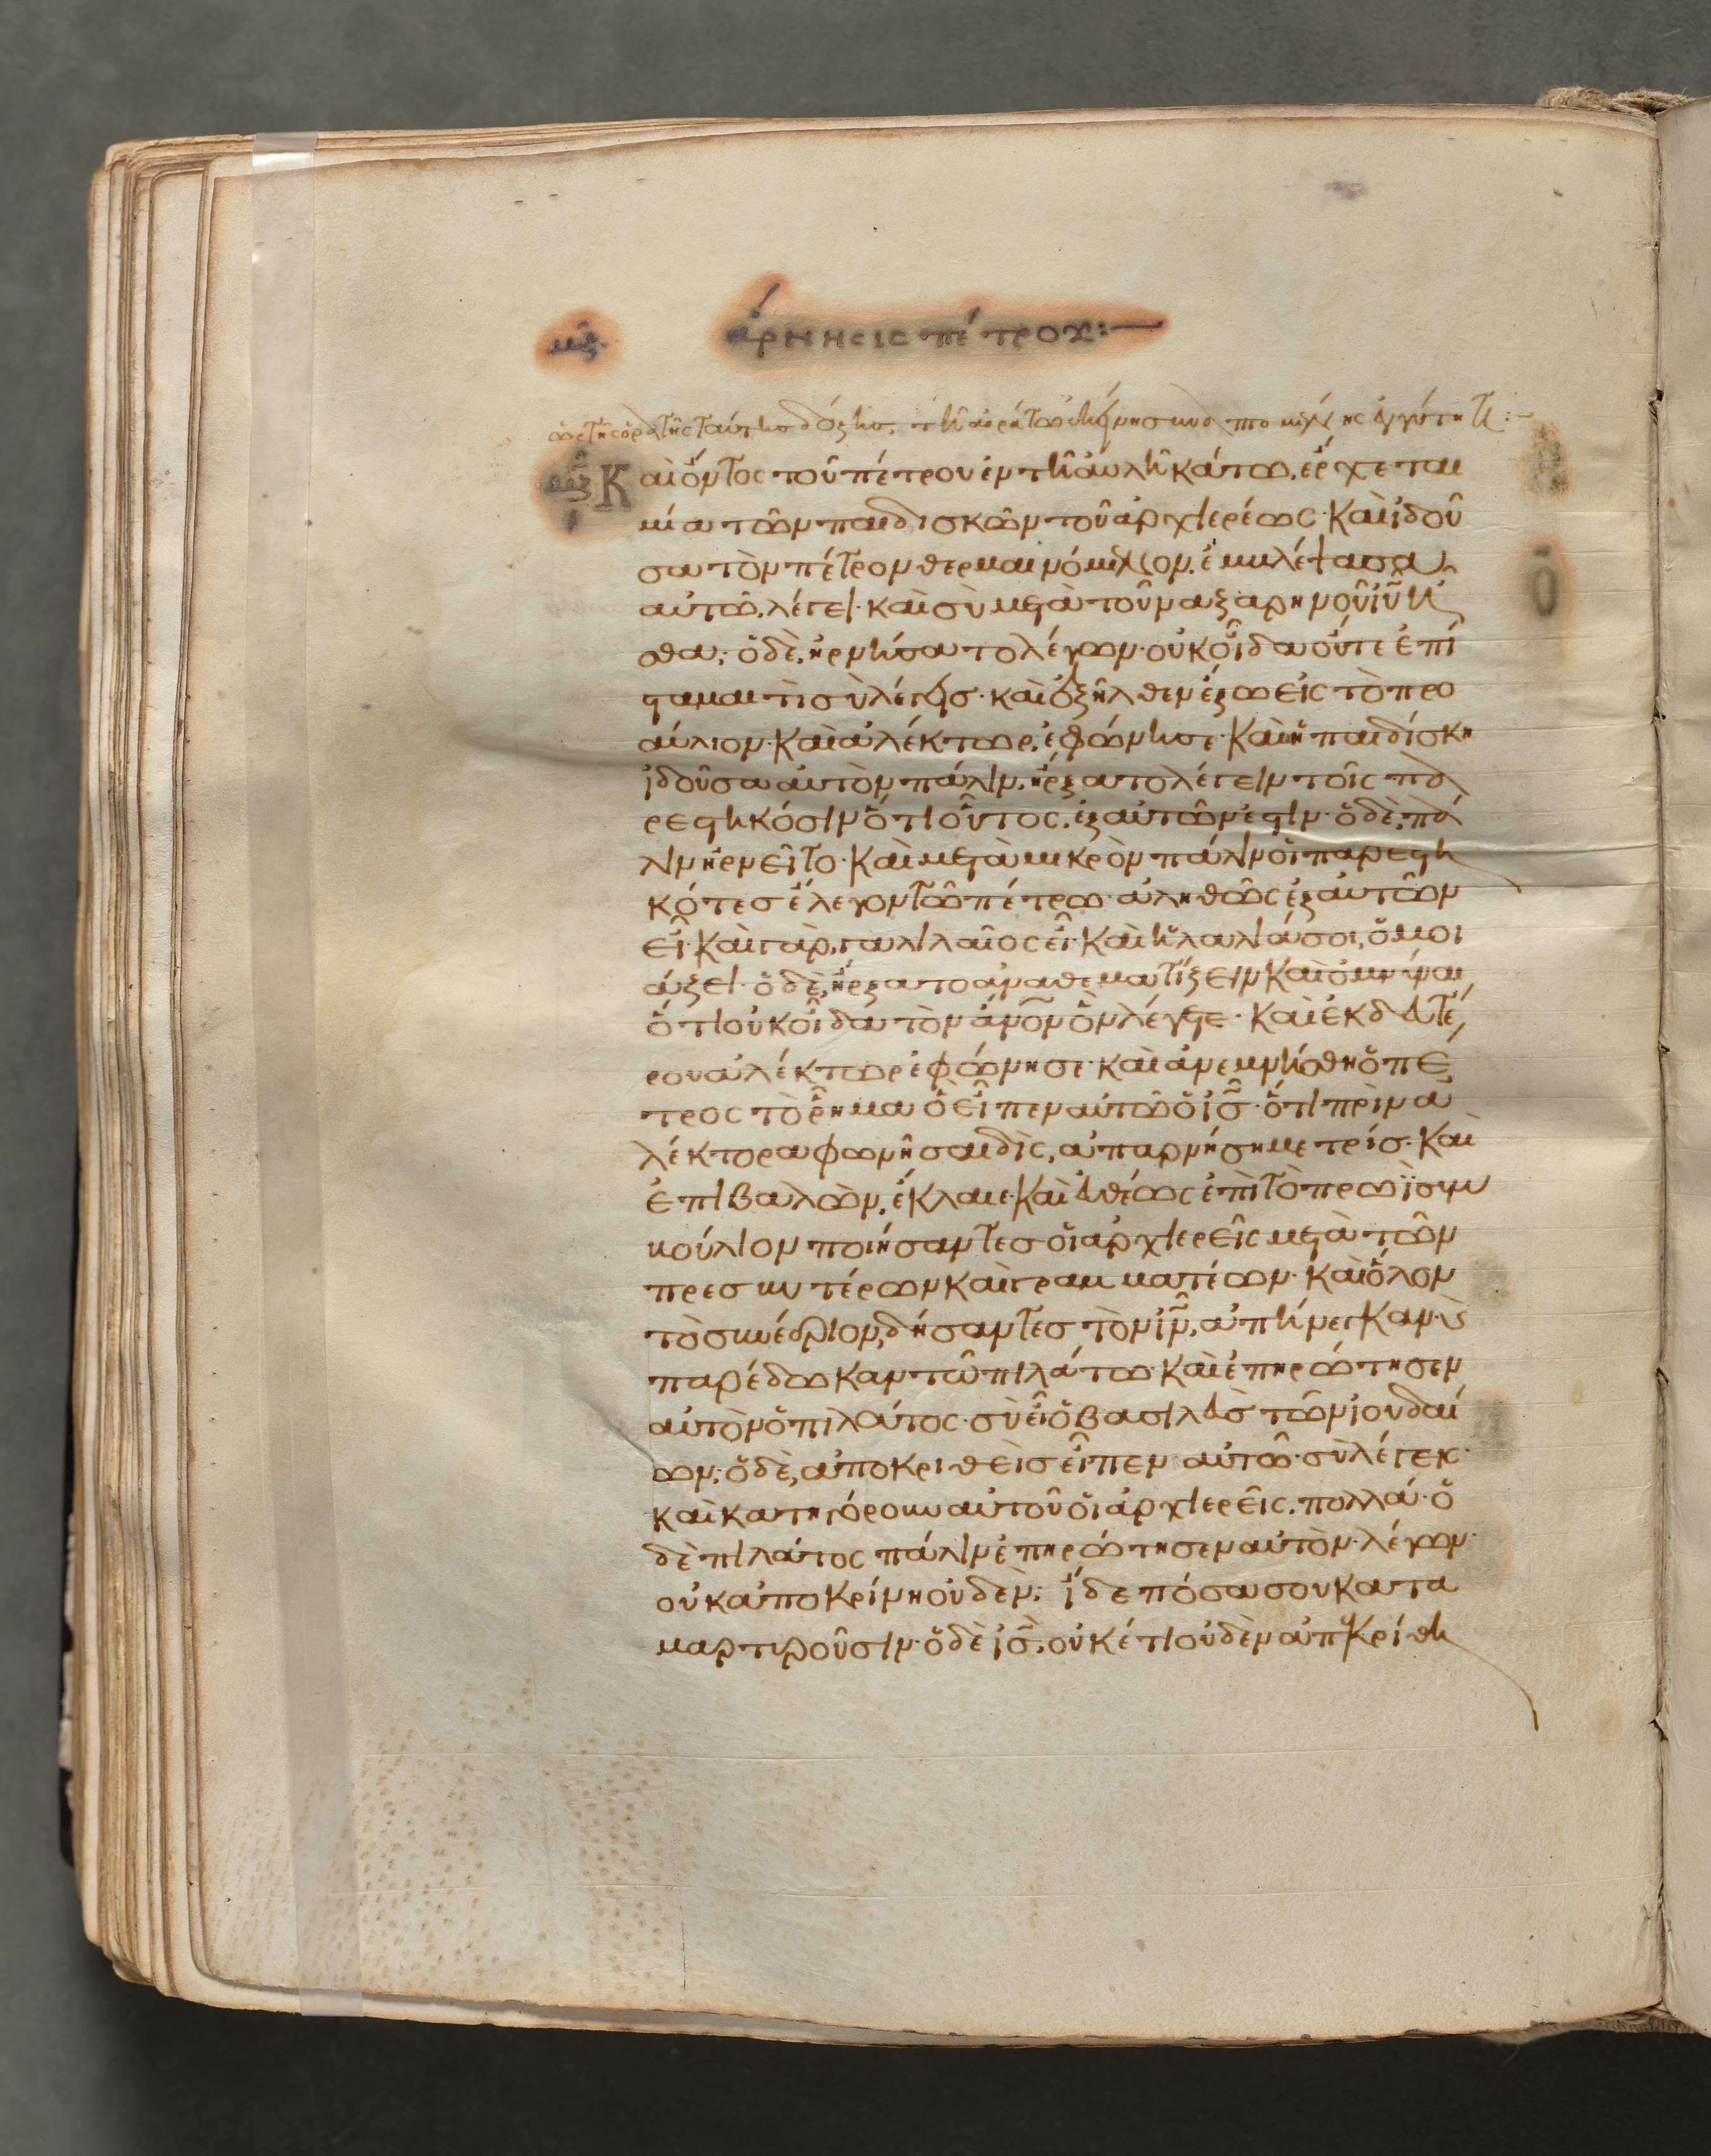 μϛ· ἄρνησις πέτρου:—
Καὶ ὄντος τοῦ πέτρου ἐν τῆ ἀυλῆ κάτω, ἔρχεται
μία τῶν παιδισκῶν τοῦ ἀρχιερέως· καὶ ἰδοῦ
σα τὸν πέτρον θερμαινόμενον, ἐμβλέψασα
αὐτῶ, λέγει· καὶ σὺ μετὰ τοῦ ναζαρηνοῦ ἰῦ ἦ
σθα; ὁ δὲ, ἠρνήσατο λέγων· οὐκ οἶδα οὔτε ἐπί
σταμαι τί σὺ λέγεις· καὶ ἐξῆλθεν ἔξω εἰς τὸ προ
αύλιον· καὶ ἀλέκτωρ, ἐφώνησε· καὶ ἡ παιδίσκη
ἰδοῦσα αὐτὸν πάλιν, ἤρξατο λέγειν τοῖς πα
ρεστηκόσιν ὅτι οὗτος, ἐξ αὐτῶν ἐστιν· ὁ δὲ, πά
λιν ἠρνεῖτο· καὶ μετὰ μικρὸν πάλιν οἱ παρεστη
κότες ἔλεγον τῶ πέτρω· ἀληθῶς ἐξ αὐτῶν
εἶ· καὶ γὰρ, γαλιλαῖος εἶ· καὶ ἡ λαλιά σοι, ὁμοι
άζει· ὁ δὲ, ἤρξατο ἀναθεματίζειν καὶ ὀμνύναι,
ὅτι οὐκ οἶδα τὸν ἀνον ὃν λέγετε· καὶ ἐκ δευτέ
ρου ἀλέκτωρ ἐφώνησε· καὶ ἀνεμνήσθη ὁ πέ
τρος τὸ ῥῆμα ὃ εἶπεν αὐτῶ ὁ ις· ὅτι πρὶν ἀ
λέκτορα φωνῆσαι δὶς, ἀπαρνήση με τρίς· καὶ
ἐπιβαλὼν, ἔκλαιε· καὶ εὐθέως ἐπὶ τὸ πρωῒ συμ
βούλιον ποιήσαντες οἱ ἀρχιερεῖς μετὰ τῶν
πρεσβυτέρων καὶ γραμματέων· καὶ ὅλον
τὸ συνέδριον, δήσαντες τὸν ιν, ἀπήνεγκαν· ϗ
παρέδωκαν τῶ πιλάτω· καὶ ἐπηρώτησεν
αὐτὸν ὁ πιλάτος· σὺ εἶ ὁ βασιλεὺς τῶν ἰουδαί
ων; ὁ δὲ, ἀποκριθεὶς εἶπεν αὐτῶ· σὺ λέγεις·
καὶ κατηγόρουν αὐτοῦ οἱ ἀρχιερεῖς, πολλά· ὁ
δὲ πιλάτος πάλιν ἐπηρώτησεν αὐτὸν λέγων·
οὐκ ἀποκρίνη οὐδὲν; ἴδε πόσα σου κατα
μαρτυροῦσιν· ὁ δὲ ις, οὐκέτι οὐδὲν ἀπεκρίθη